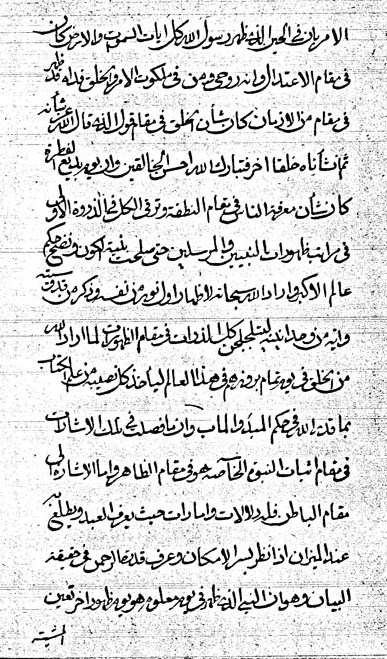 الامر بان في الحين الذي ظهر رسول الله كل ايات السموات والارض كان
في مقام الاعتدال وانه روحي ومن في ملكوت الامر والخلق فداه قد ظهر
في مقام من الازمان كان شأن الخلق في مقام قول الله قال الله عز شأنه
ثم انشأناه خلقا اخر فتبارك الله احسن الخالقين وان يوم بديع الفطرة
كان شأن معرفة الناس في مقام النطفة وترقى الكل في الذروة الاولى
في مراتب ظهورات النبيين والمرسلين حتى بلغت بنية الكون ونضج حكم
عالم الاكبر واراد الله سبحانه لاظهار انور من نفسه وذكر من قدوسيته
وانه من وحدانيته ليتلجلجن كل الذوات في مقام الظهورات لما اراد الله
من الخلق في يوم تمام بروزهم في هذا العالم ليأخذ كل نصيبه من علم الكتاب
بما قدر الله في حكم المبدء والماب وان ما فصلت في تلك الاشارات
في مقام اثبات النبوة الخاصة هو في مقام الظاهر واما الاشارة الى
مقام الباطن فله دلالات وامارات حيث يعرف العبد ويطلع به
عند الميزان اذا نظر بسر الامكان وعرف قدرة الرحمن في حقيقة
البيان وهو ان النبي الذي ظهر في يوم معلوم هو يوم ظهور اخر تعين
المشية